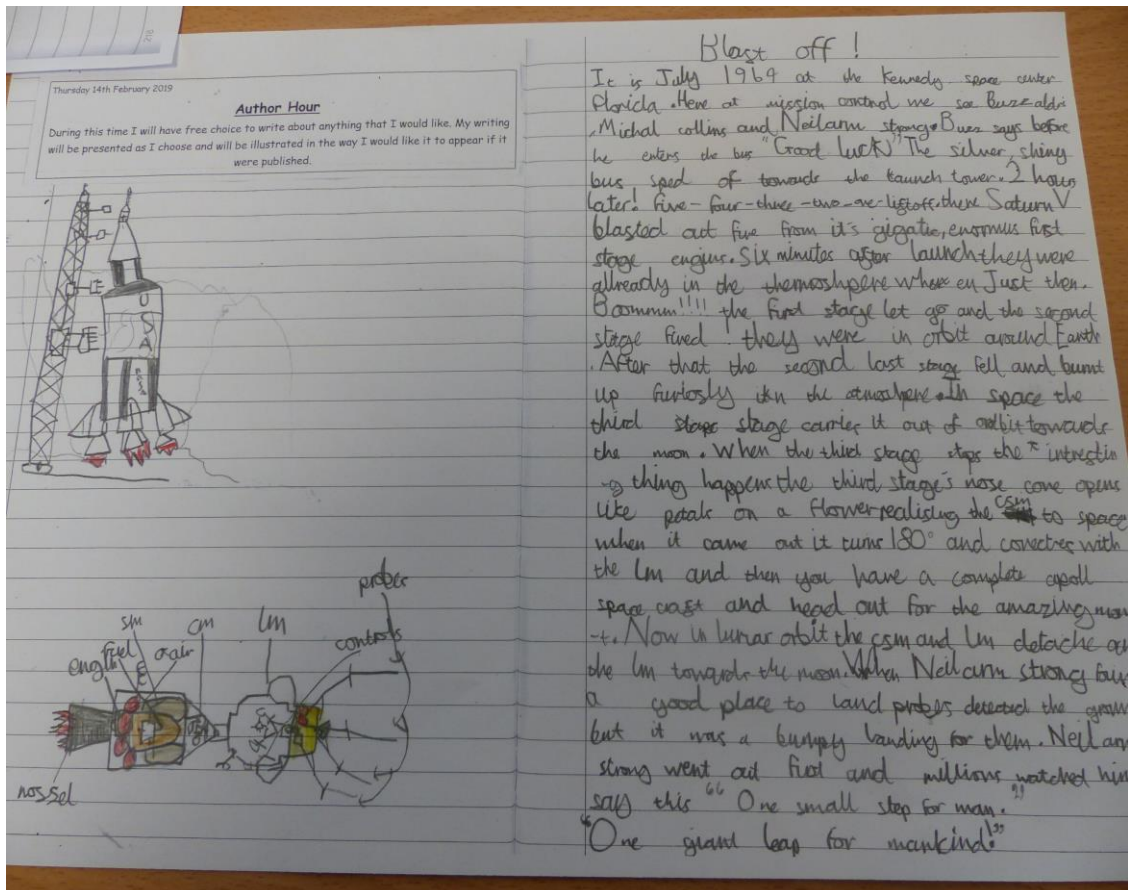 218
Thursday 14th February 2019
Author Hour
During this time I will have free choice to write about anything that I would like. My writing
will be presented as I choose and will be illustrated in the way I would like it to appear if it
were published.
USA
sm
cm
lm
probes
controls
fuel
oxair
engin
nossel
Blast off!
It is July 1969 at the Kennedy space center
Florida. Here at mission control we see Buzz aldri
. Michal collins and Neilarm strong. Buzz says before
he enters the bus "Good luck" The silver, shiny
bus sped of towards the launch tower. 2 hours
later! five-four-three-two-one-liftoff. there Saturn V
blasted out fire from it's gigatic, enormus first
stage engins. Six minutes after launch they were
allready in the themosshpere when Just then.
Boommm!!!! the first stage let go and the second
stage fired! they were in orbit around Earth
. After that the second last stage fell and burnt
up furiosly in the atmoshpere. In space the
third stage carries it out of orbit towards
the moon. When the third stage stops the intrestin
-g thing happens the third stage's nose cone opens
like petals on a flower realising the csm to space
when it came out it turns 180° and conectes with
the lm and then you have a complete apoll
space craft and head out for the amazing moon
Now in lunar orbit the csm and lm detache
the lm towards the moon. When Neilarm strong
a good place to land probes detected the
but it was a bumpy landing for them. Neil arm
strong went out first and millions watched him
say this "One small step for man."
"One giant leap for mankind!"